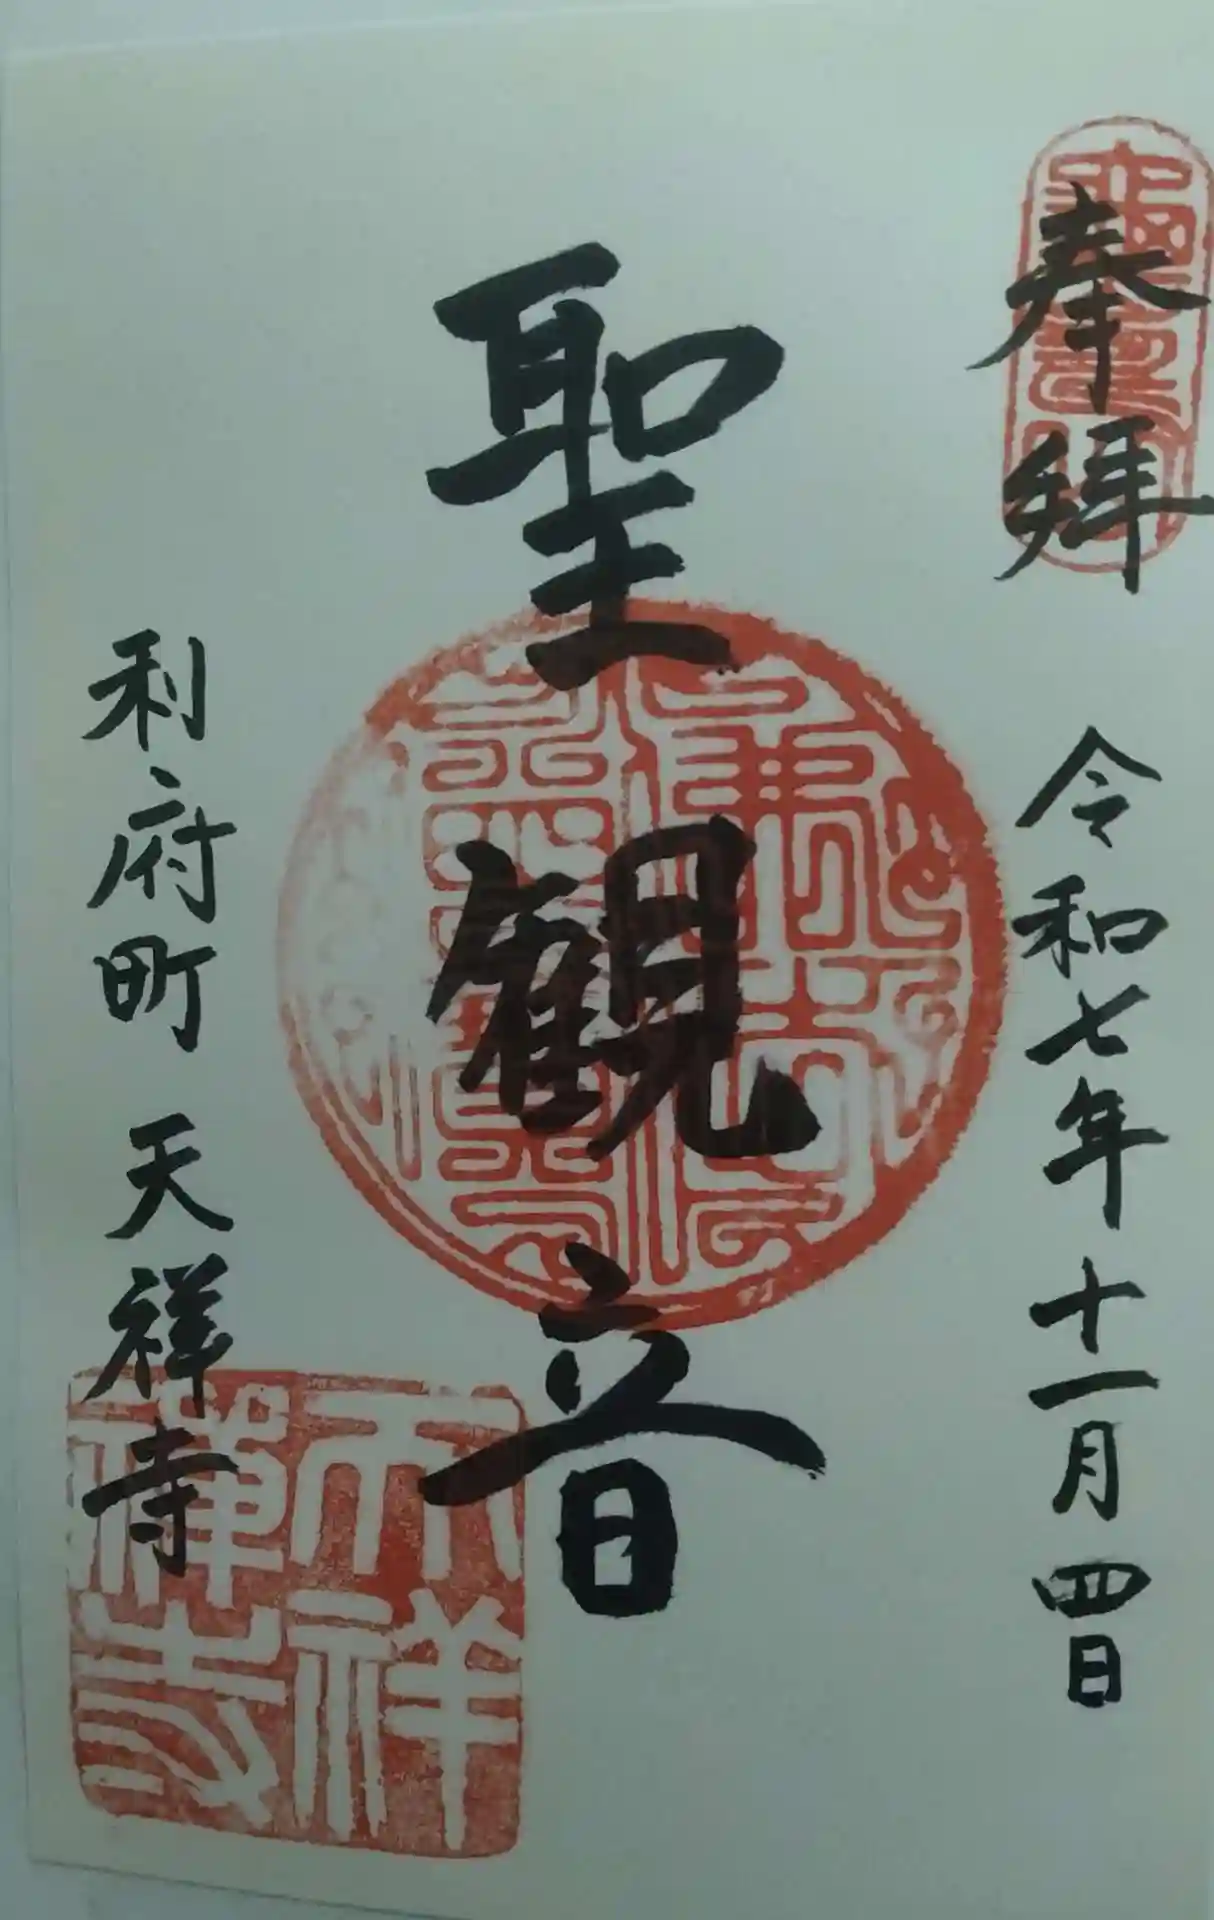 奉拝
令和七年十一月四日
聖観音
利府町 天祥寺
天祥
禅寺